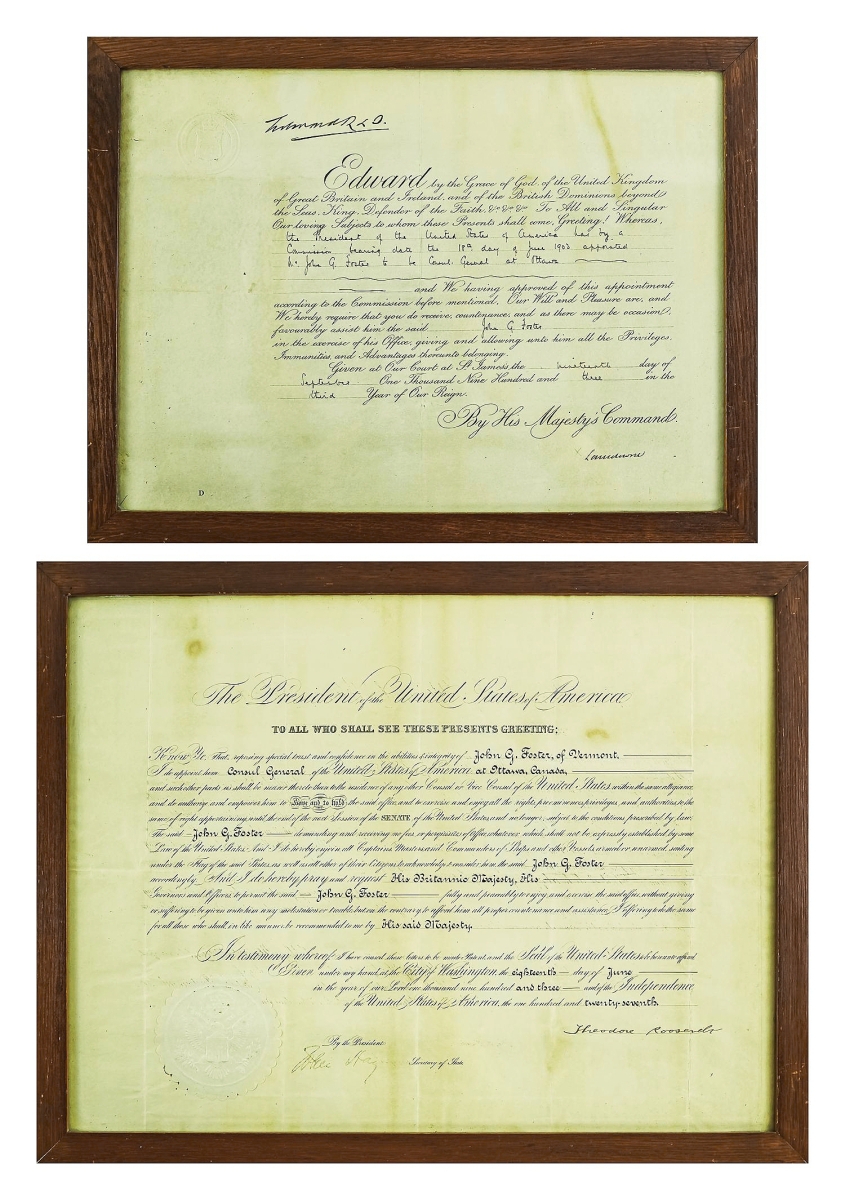 Edward R & I.
Edward by the Grace of God, of the United Kingdom
of Great Britain and Ireland, and of the British Dominions beyond
the Seas, King, Defender of the Faith, &c. &c. &c. To All and Singular
Our loving Subjects to whom these Presents shall come, Greeting! Whereas,
the President of the United States of America has by a
Commission bearing date the 18th day of June 1903 appointed
Mr. John G. Foster to be Consul General at Ottawa
and We having approved of this appointment
according to the Commission before mentioned, Our Will and Pleasure are, and
We hereby require that you do receive, countenance, and as there may be occasion,
favourably assist him the said John G. Foster
in the exercise of his Office, giving and allowing unto him all the Privileges,
Immunities, and Advantages thereunto belonging.
Given at Our Court at St James's, the nineteenth day of
September One Thousand Nine Hundred and three in the
third Year of Our Reign.
By His Majesty's Command.
Lansdowne
D
The President of the United States of America,
TO ALL WHO SHALL SEE THESE PRESENTS GREETING:
Know Ye, That, reposing special trust and confidence in the abilities & integrity of John G. Foster, of Vermont,
I do appoint him Consul General of the United States of America at Ottawa, Canada,
and such other parts as shall be nearer thereto than to the residence of any other Consul or Vice Consul of the United States within the same allegiance
and do authorize and empower him to Have and to hold the said office, and to exercise and enjoy all the rights, preeminences, privileges, and authorities, to the
same of right appertaining, until the end of the next Session of the SENATE of the United States, and no longer, subject to the conditions prescribed by law;
The said John G. Foster demanding and receiving no fees, or perquisites of Office, whatever, which shall not be expressly established by some
Law of the United States. And I do hereby enjoin all Captains, Masters and Commanders of Ships and other Vessels, armed or unarmed, sailing
under the Flag of the said States, as well as all other of their Citizens, to acknowledge & consider him, the said John G. Foster
accordingly. And I do hereby pray and request His Britannic Majesty, His
Governors and Officers, to permit the said John G. Foster fully and peaceably to enjoy, and exercise the said office, without giving
or suffering to be given unto him any molestation or trouble, but on the contrary, to afford him all proper countenance and assistance; I offering to do the same
for all those who shall, in like manner, be recommended to me by His said Majesty.
In testimony whereof, I have caused these letters to be made Patent, and the Seal of the United States to be hereunto affixed.
Given under my hand, at the City of Washington, the eighteenth day of June
in the year of our Lord one thousand nine hundred and three and of the Independence
of the United States of America, the one hundred and twenty-seventh.
Theodore Roosevelt
By the President:
John Hay
Secretary of State.